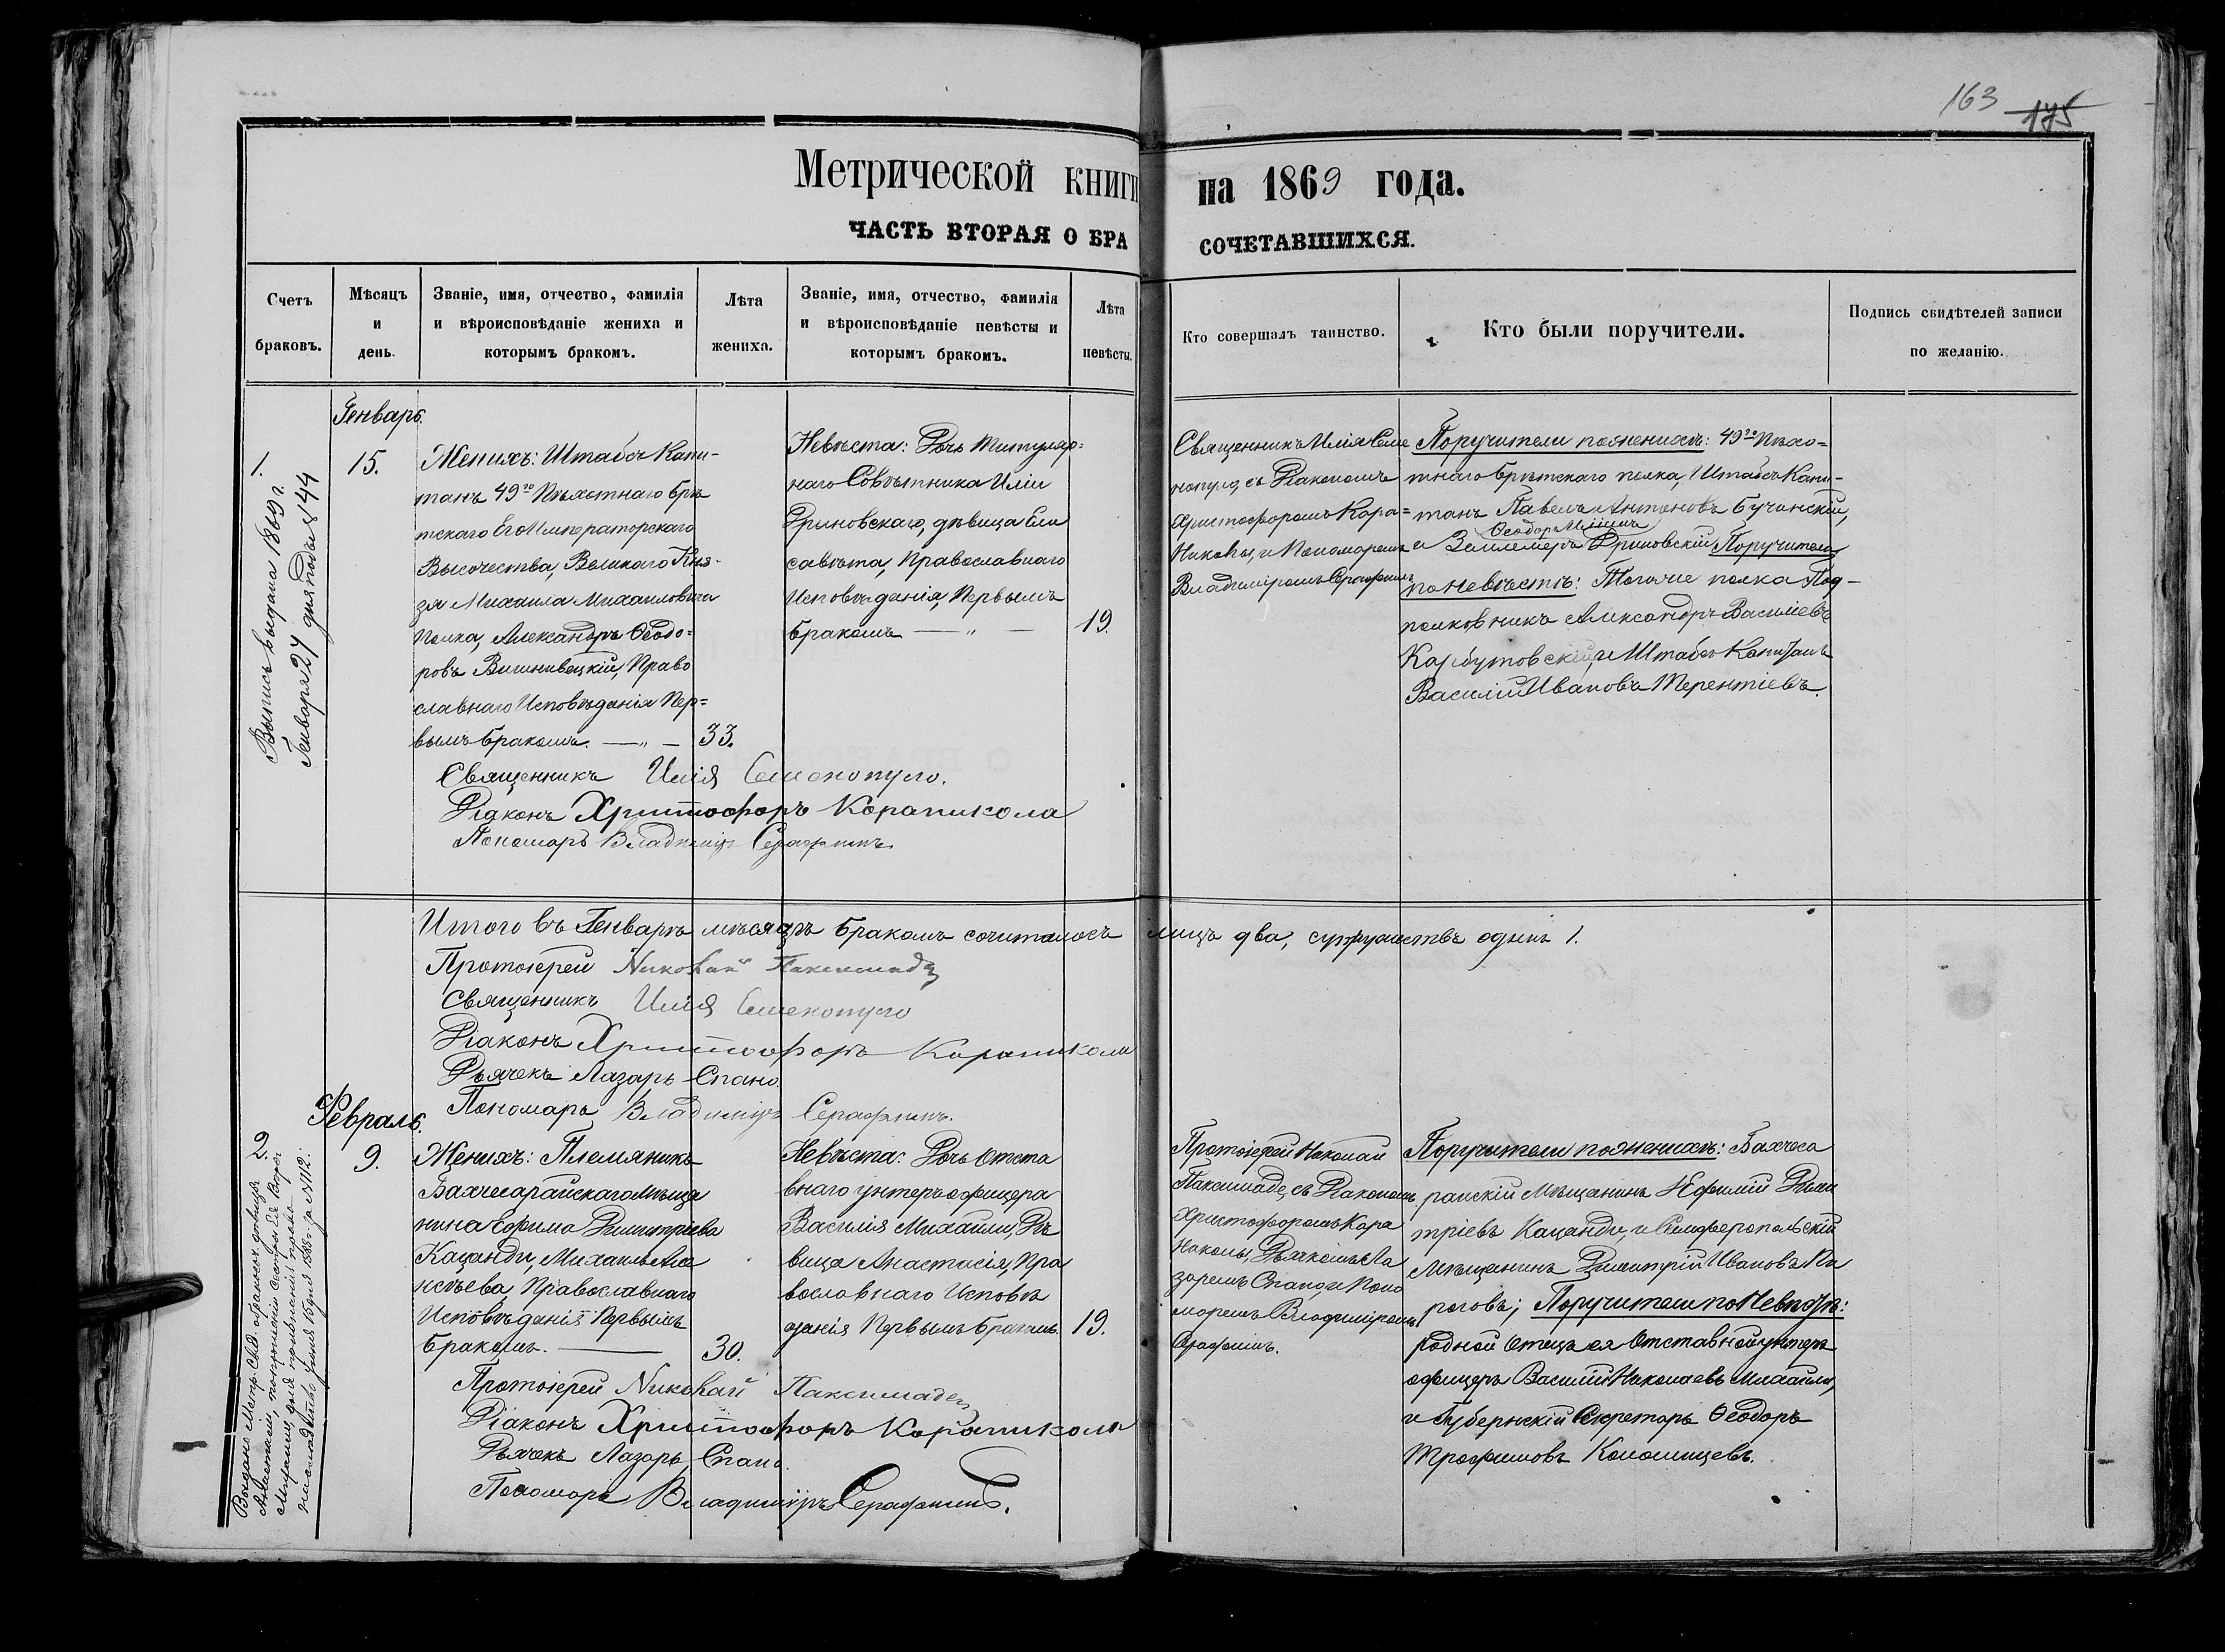 163 175
Метрической книги на 1869 года.
ЧАСТЬ ВТОРАЯ О БРА СОЧЕТАВШИХСЯ.
Счетъ
браковъ.
Мѣсяцъ
и
день.
Званіе, имя, отчество, фамилія
и вѣроисповѣданіе жениха и
которымъ бракомъ.
Лѣта
жениха.
Званіе, имя, отчество, фамилія
и вѣроисповѣданіе невѣсты и
которымъ бракомъ.
Лѣта
невѣсты.
Кто совершалъ таинство.
Кто были поручители.
Подпись свидѣтелей записи
по желанію.
Генварь.
1.
Выпись выдана 1869 г.
Генваря 27 дня подъ № 44
15.
Женихъ: Штабсъ Капи-
танъ 49го Пѣхотнаго Брѣ
тскаго Его Императорскаго
Высочества, Великаго Кня-
зя Михаила Михаиловича
Полка, Александръ Ѳеодо-
ровъ Вишнивецкій, Право
славнаго Исповѣданія Пер=
вымъ бракомъ. — „ —
33.
Невѣста: Дочь Титуляр=
наго Совѣтника Иліи
Дрыновскаго, дѣвица Ели
савѣта, Православнаго
Исповѣданія, Первымъ
бракомъ — „ —
19.
Священникъ Илія Семе
нопуло, съ Діакономъ
Христофоромъ Кара=
Николы, и Пономаремъ
Владиміромъ Серафимъ
Поручители по женихѣ: 49го Пѣхо=
тнаго Брѣтскаго полка, Штабсъ Капи-
танъ Павелъ Антоновъ Бучинскій,
Ѳеодоръ Иліинъ
и Землемеръ Дриновскій Поручители
по невѣстѣ: Тогоже полка Под-
полковникъ Александръ Василіевъ
Карбутовскій, и Штабсъ Капитанъ
Василій Ивановъ Терентіевъ.
Священникъ Илія Семенопуло.
Діаконъ Христофоръ Караникола
Пономарь Владиміръ Серафимъ
Итого въ Генварѣ мѣсяцѣ бракомъ сочиталось лицъ два, супружествъ одинъ 1.
Протоіерей Николай
Священникъ Илія Семенопуло
Діаконъ Христофоръ Караникола
Дьячекъ Лазарь Спано.
Пономарь Владиміръ Серафимъ.
Февраль.
2.
9.
Женихъ: Племяникъ
Бахчесарайскаго Мѣща
нина Ефима Димитріева
Кацанди, Михаилъ Але
ксѣева, Православнаго
Исповѣданія Первымъ
бракомъ. —
30.
Невѣста: Дочь Отста
внаго унтеръ офицера
Василія Михаили, Дѣ
вица Анастасія, Пра
вославнаго Исповѣ
данія Первымъ бракомъ.
19.
Протоіерей Николай
Паксимаде, съ Діакономъ
Христофоромъ Кара
Николы, Дьячкомъ Ла
заремъ Спано, и Поно
маремъ Владиміромъ
Серафимъ.
Поручители по женихѣ: Бахчеса
райскій Мѣщанинъ Ефимій Дими
тріевъ Кацанди, и Симферопольскій
Мѣщанинъ Димитрій Ивановъ Пи
роговъ; Поручители по Невѣстѣ:
родной отецъ ея Отставной унтеръ
офицеръ Василій Николаевъ Михаили,
и Губернскій Секретарь Ѳеодоръ
Трофимовъ Коломищевъ.
Протоіерей Николай Паксимаде
Діаконъ Христофоръ Караникола
Дьячекъ Лазарь Спано.
Пономарь Владиміръ Серафимъ.